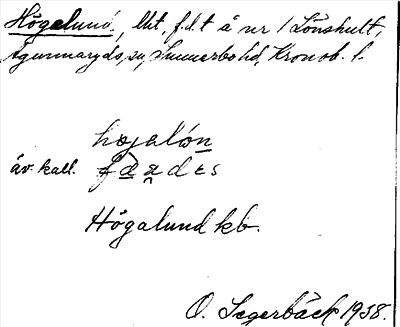 Högalund, lht, f.d.t å nr 1 Lönshult,
Agunnaryds sn, Sunnerbo hd, Kronob. l.
høgalón
äv. kall.
Högalund kb.
O. Segerbäck 1938.